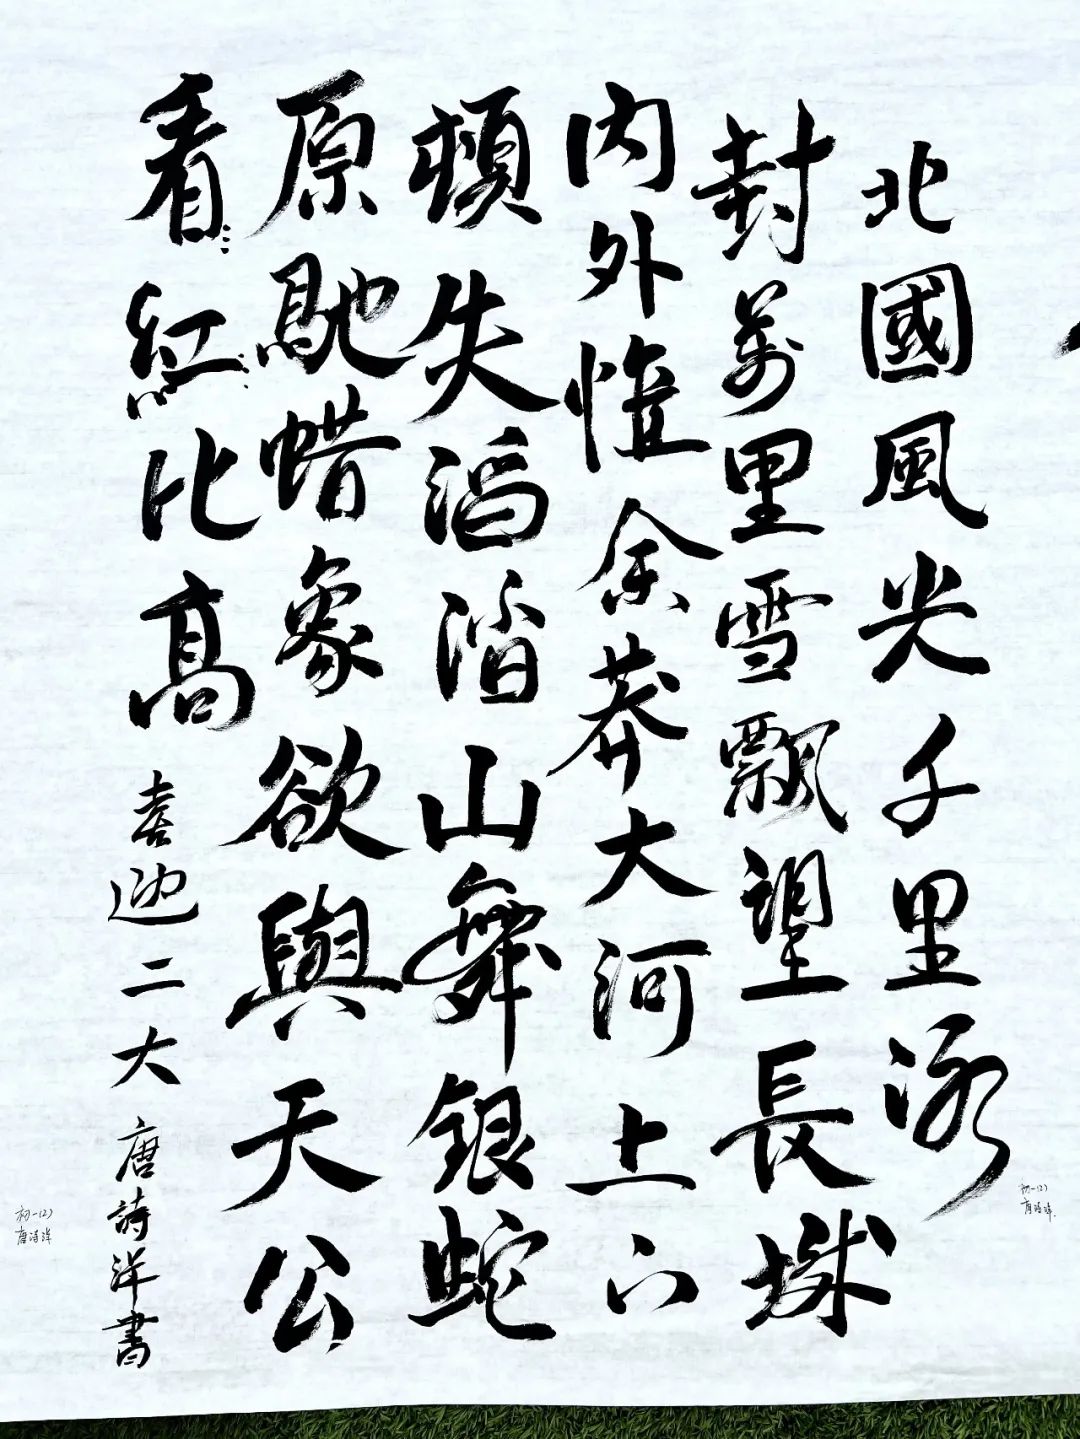 北國風光千里冰
封萬里雪飄望長城
内外惟余莽大河上下
頓失滔滔山舞銀蛇
原馳蜡象欲與天公
看紅比高
喜迎二大 唐詩洋書
初一(2)
唐詩洋
初一(2)
唐詩洋